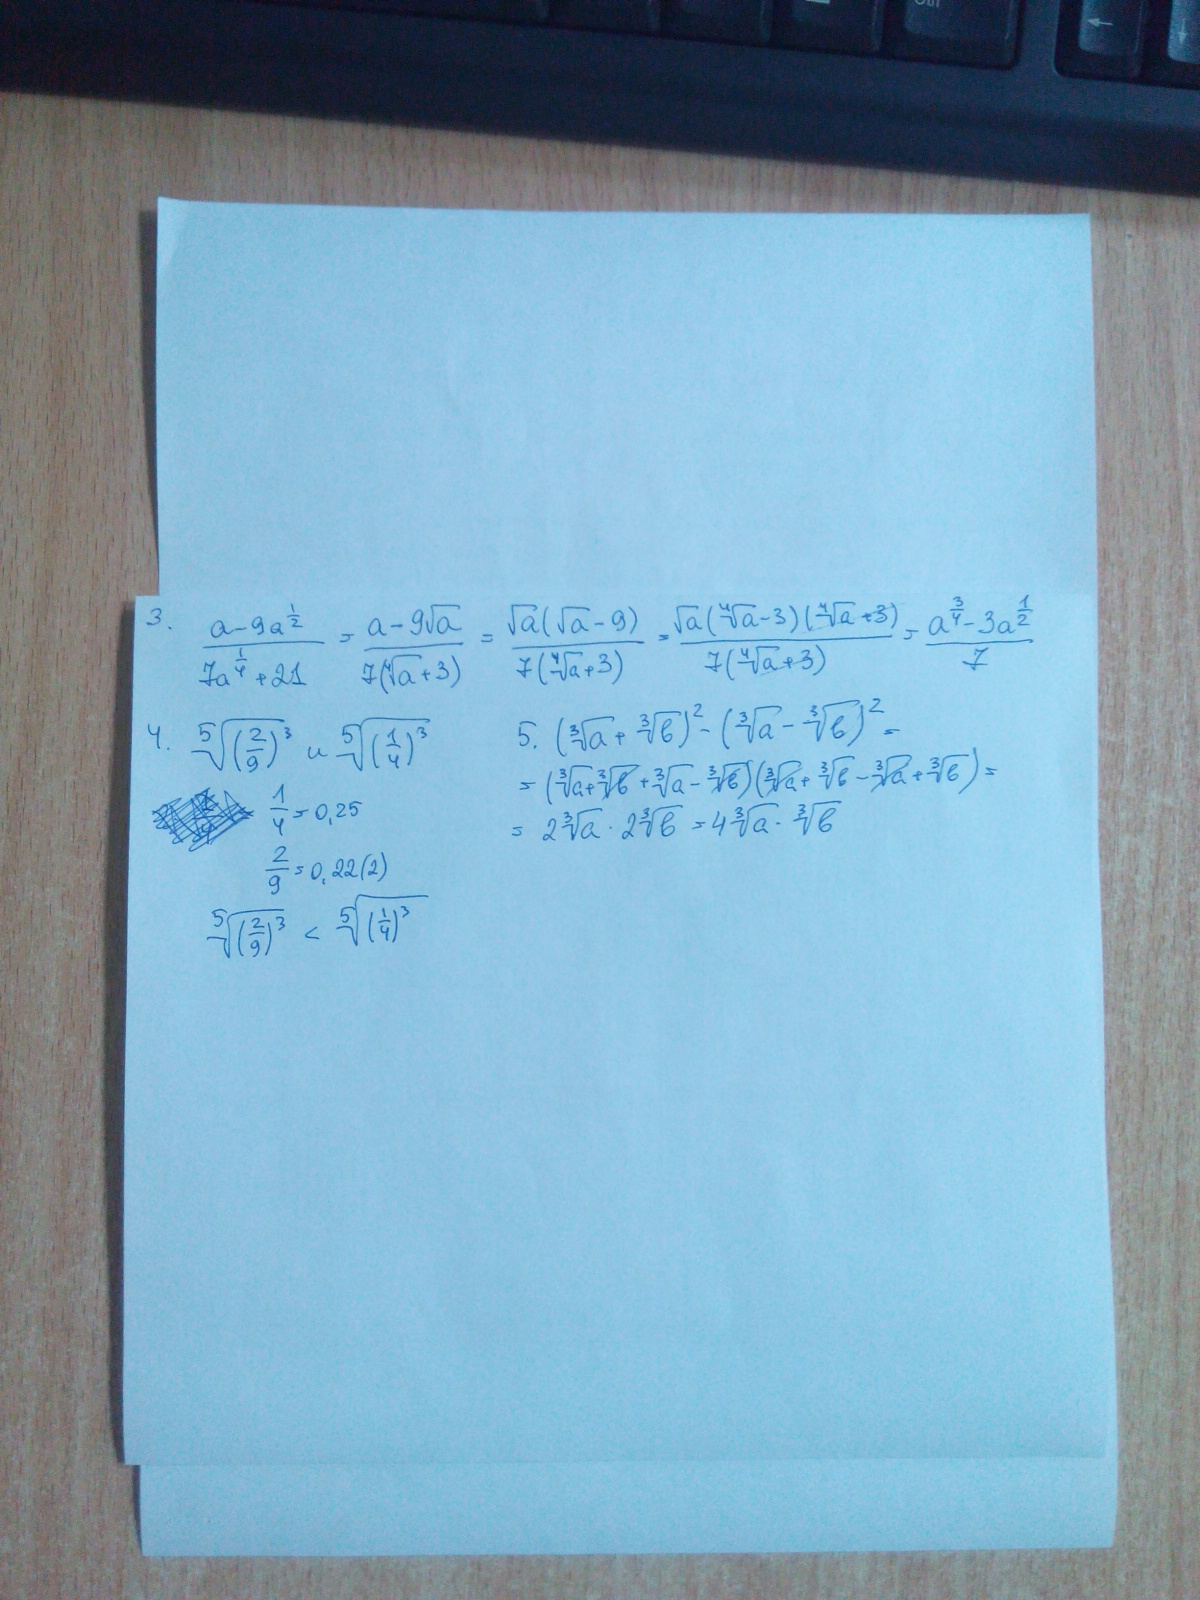 3. (a-9a^(1/2))/(7a^(1/4)+21) = (a-9√a)/(7(⁴√a+3)) = (√a(√a-9))/(7(⁴√a+3)) = (√a(⁴√a-3)(⁴√a+3))/(7(⁴√a+3)) = (a^(3/4)-3a^(1/2))/7
4. ⁵√((2/9)^3) и ⁵√((1/4)^3)
1/4 = 0,25
2/9 = 0,22(2)
⁵√((2/9)^3) < ⁵√((1/4)^3)
5. (³√a+³√в)²-(³√a-³√в)² =
= (³√a+³√в+³√a-³√в)(³√a+³√в-³√a+³√в) =
= 2³√a · 2³√в = 4³√a · ³√в